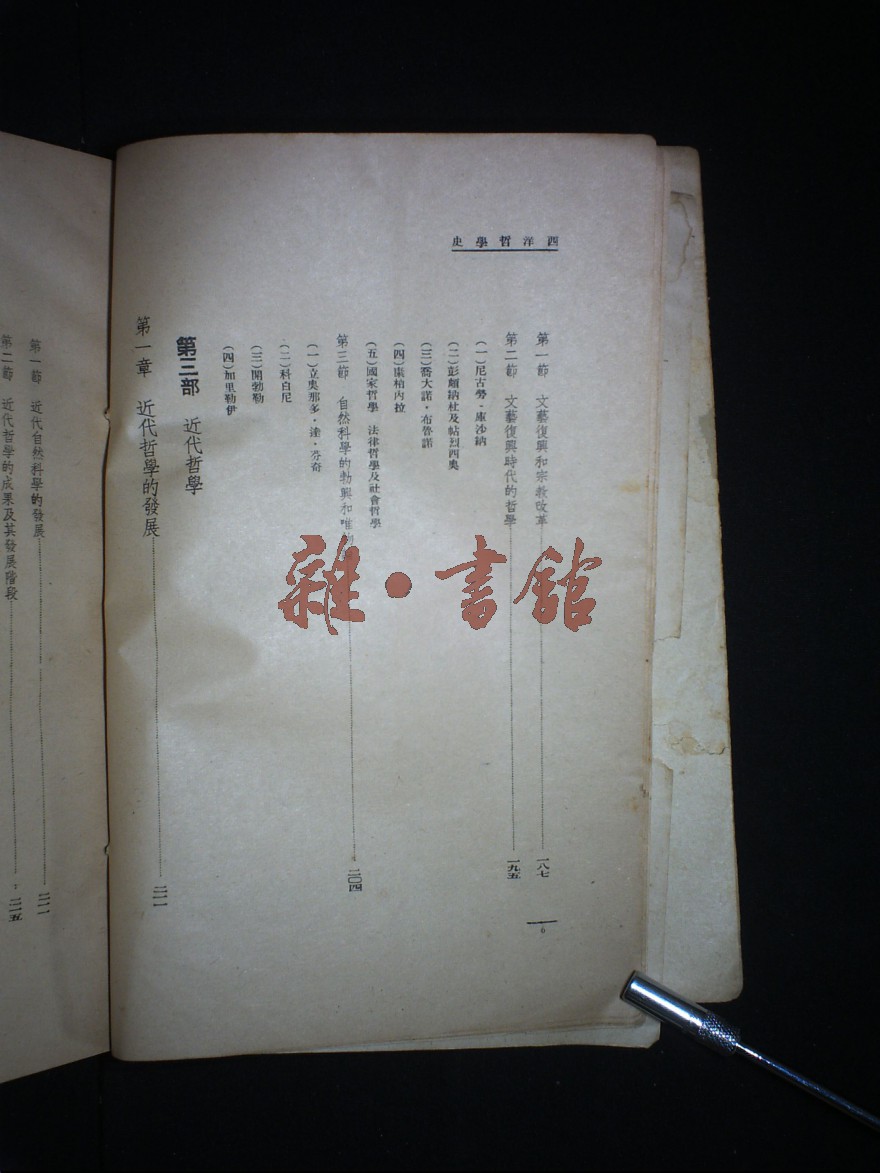 西洋哲學史
第一節 文藝復興和宗教改革 一八七
第二節 文藝復興時代的哲學 一九五
(一)尼古勞・庫沙納
(二)彭頗納杜及帖烈西奧
(三)喬大諾・布魯諾
(四)康柏內拉
(五)國家哲學 法律哲學及社會哲學
第三節 自然科學的勃興和唯物 二〇四
(一)立奧那多・達・芬奇
(二)科白尼
(三)開勃勒
(四)加里勒伊
第三部 近代哲學
第一章 近代哲學的發展 二一一
6
第一節 近代自然科學的發展 二一一
第二節 近代哲學的成果及其發展階段 二一五
雜・書館